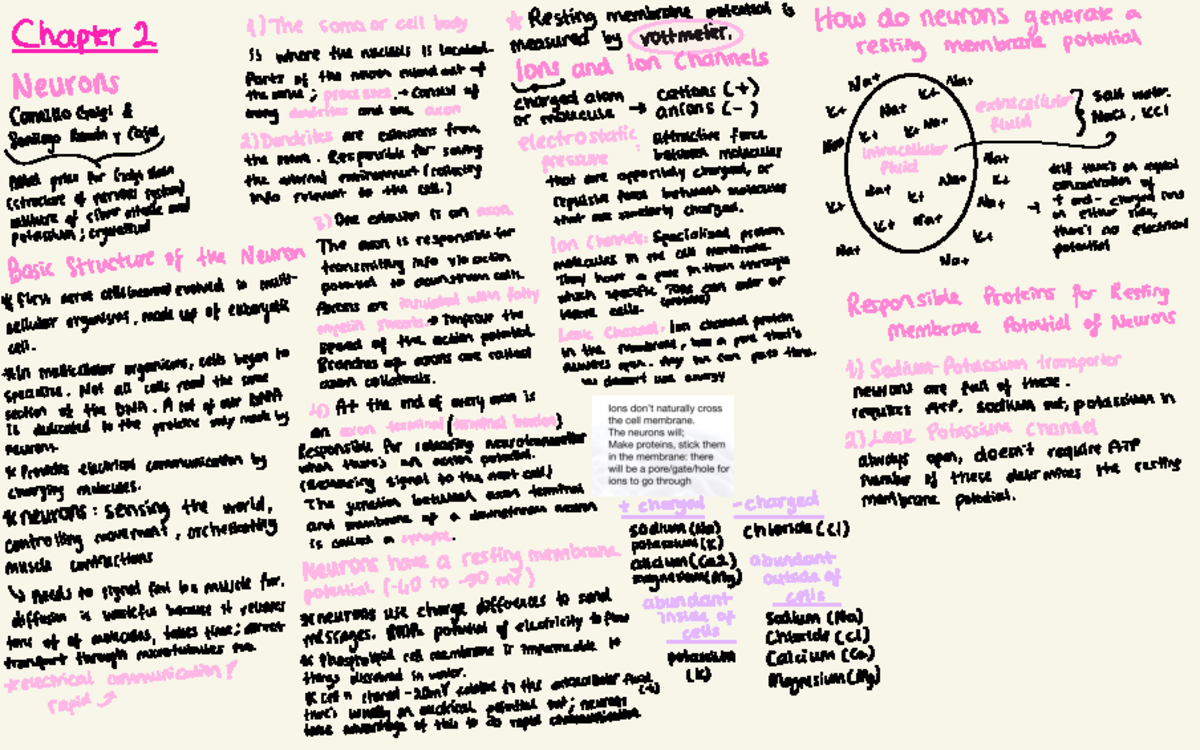 Chapter 2
Neurons
Camillo Golgi &
Santiago Ramón y Cajal
Nobel prize for Golgi stain
(structure of nervous system)
mixture of silver nitrate and
potassium; crystallized
Basic Structure of the Neuron
* First nerve cells (neurons) evolved in multi-
cellular organisms, made up of eukaryotic
cell.
* In multicellular organisms, cells began to
specialize. Not all cells read the same
section of the DNA. A lot of our DNA
is dedicated to the proteins only made by
neurons.
* Provides electrical communication by
charging molecules.
* neurons: sensing the world,
controlling movement, orchestrating
muscle contractions
↳ needs to signal fast to a muscle fiber.
diffusion is wasteful because it releases
tons of molecules, takes time; direct
transport through microtubules too.
* electrical communication!
rapid
1) The soma or cell body
is where the nucleus is located.
Parts of the neuron extend out of
the soma; processes. → consist of
many dendrites and one axon
2) Dendrites are extensions from
the soma. Responsible for sensing
the external environment (collecting
info relevant to the cell.)
3) One extension is an axon.
The axon is responsible for
transmitting info via action
potential to downstream cells.
Axons are insulated with fatty
myelin sheaths → improve the
speed of the action potential.
Branches off axons are called
axon collaterals.
4) At the end of every axon is
an axon terminal (terminal button)
Responsible for releasing neurotransmitter
when there's an action potential.
(releasing signal to the next cell)
The junction between axon terminal
and membrane of a downstream neuron
is called a synapse.
Neurons have a resting membrane
potential (-40 to -90 mV)
* neurons use charge differences to send
messages. potential of electricity to flow
* Phospholipid cell membrane is impermeable to
things dissolved in water.
* Cell is relative to the extracellular fluid
there's usually an electrical potential; neurons
take advantage of this to do rapid communication
★ Resting membrane potential is
measured by voltmeter.
Ions and Ion Channels
charged atom → cations (+)
or molecule anions (-)
electrostatic attractive force
pressure: between molecules
that are oppositely charged, or
repulsive force between molecules
that are similarly charged.
Ion Channels: Specialized protein
molecules in the cell membrane.
They have a pore in them through
which specific ions can enter or
leave cells.
Leak Channel: Ion channel protein
in the membrane, has a pore that's
always open. Any ion can pass thru.
↳ doesn't use energy
Ions don't naturally cross
the cell membrane.
The neurons will;
Make proteins, stick them
in the membrane: there
will be a pore/gate/hole for
ions to go through
+ charged
sodium (Na)
potassium (K)
calcium (Ca2)
magnesium (Mg)
- charged
chloride (Cl)
abundant
inside of
cells
potassium
(K)
abundant
outside of
cells
Sodium (Na)
Chloride (Cl)
Calcium (Ca)
Magnesium (Mg)
How do neurons generate a
resting membrane potential
Na+ Na+
K+ Na+ K+
Na+ K+ K+ Na+
extracellular
fluid
Salt water.
NaCl, KCl
intracellular
fluid
Na+
K+ Na+ K+ Na+ K+
K+ Na+ Na+
Na+ K+
Na+
→ still there's an equal
concentration of
+ and - charged ions
on either side,
there's no electrical
potential
Responsible Proteins for Resting
Membrane Potential of Neurons
1) Sodium-Potassium transporter
neurons are full of these.
requires ATP. sodium out, potassium in
2) Leak Potassium Channel
always open, doesn't require ATP
number of these determines the resting
membrane potential.